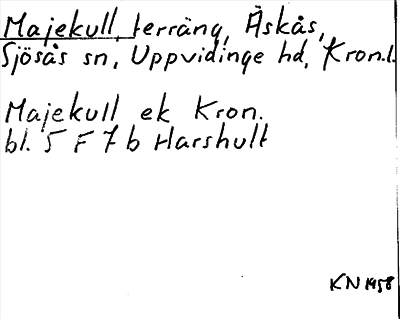 Majekull, terräng, Åskås,
Sjösås sn, Uppvidinge hd, Kron.l.
Majekull ek Kron.
bl. 5 F 7 b Harshult
KN 1958